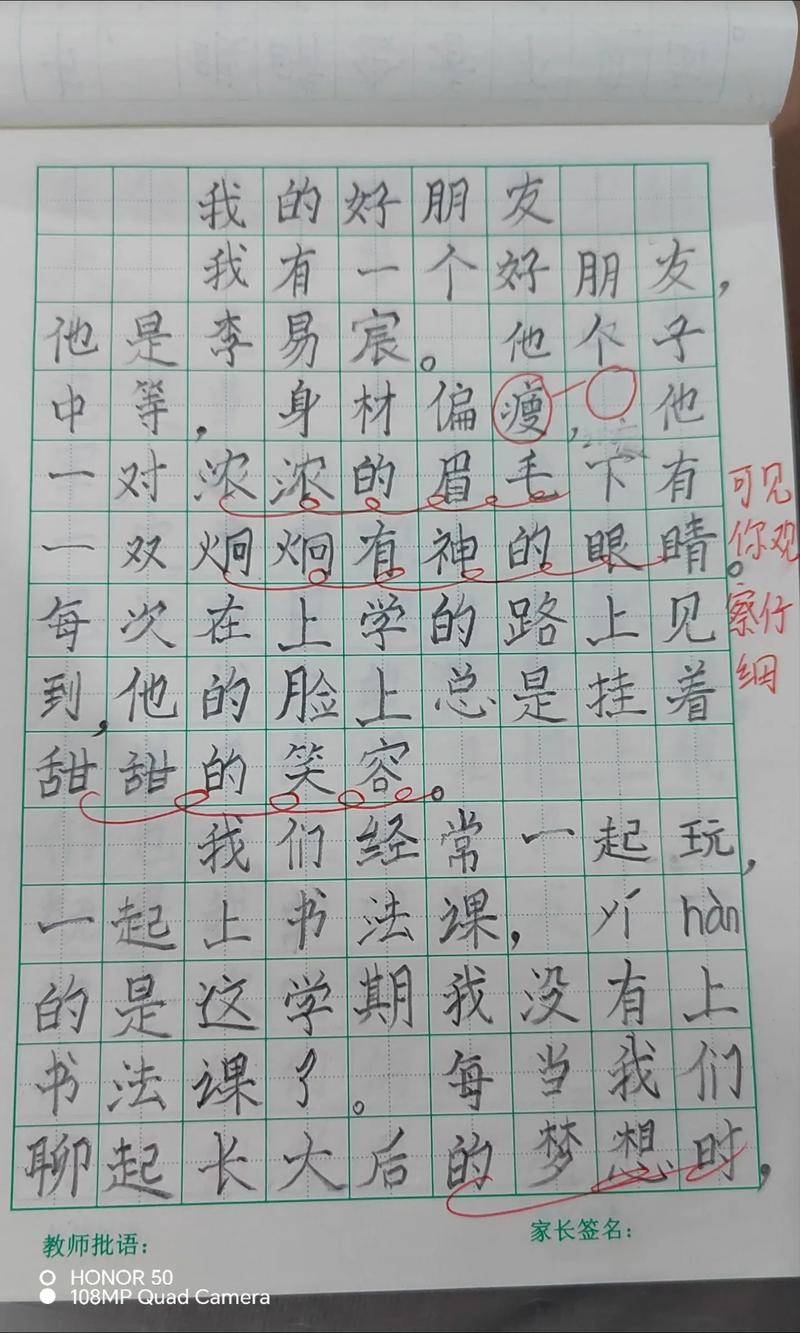 我的好朋友
我有一个好朋友，
他是李易宸。他个子
中等，身材偏瘦，他
一对浓浓的眉毛下有
一双炯炯有神的眼睛。
每次在上学的路上见
到，他的脸上总是挂着
甜甜的笑容。
我们经常一起玩，
一起上书法课，hàn
的是这学期我没有上
书法课了。每当我们
聊起长大后的梦想时，
可见
你观
察仔
细
教师批语：
家长签名：
HONOR 50
108MP Quad Camera